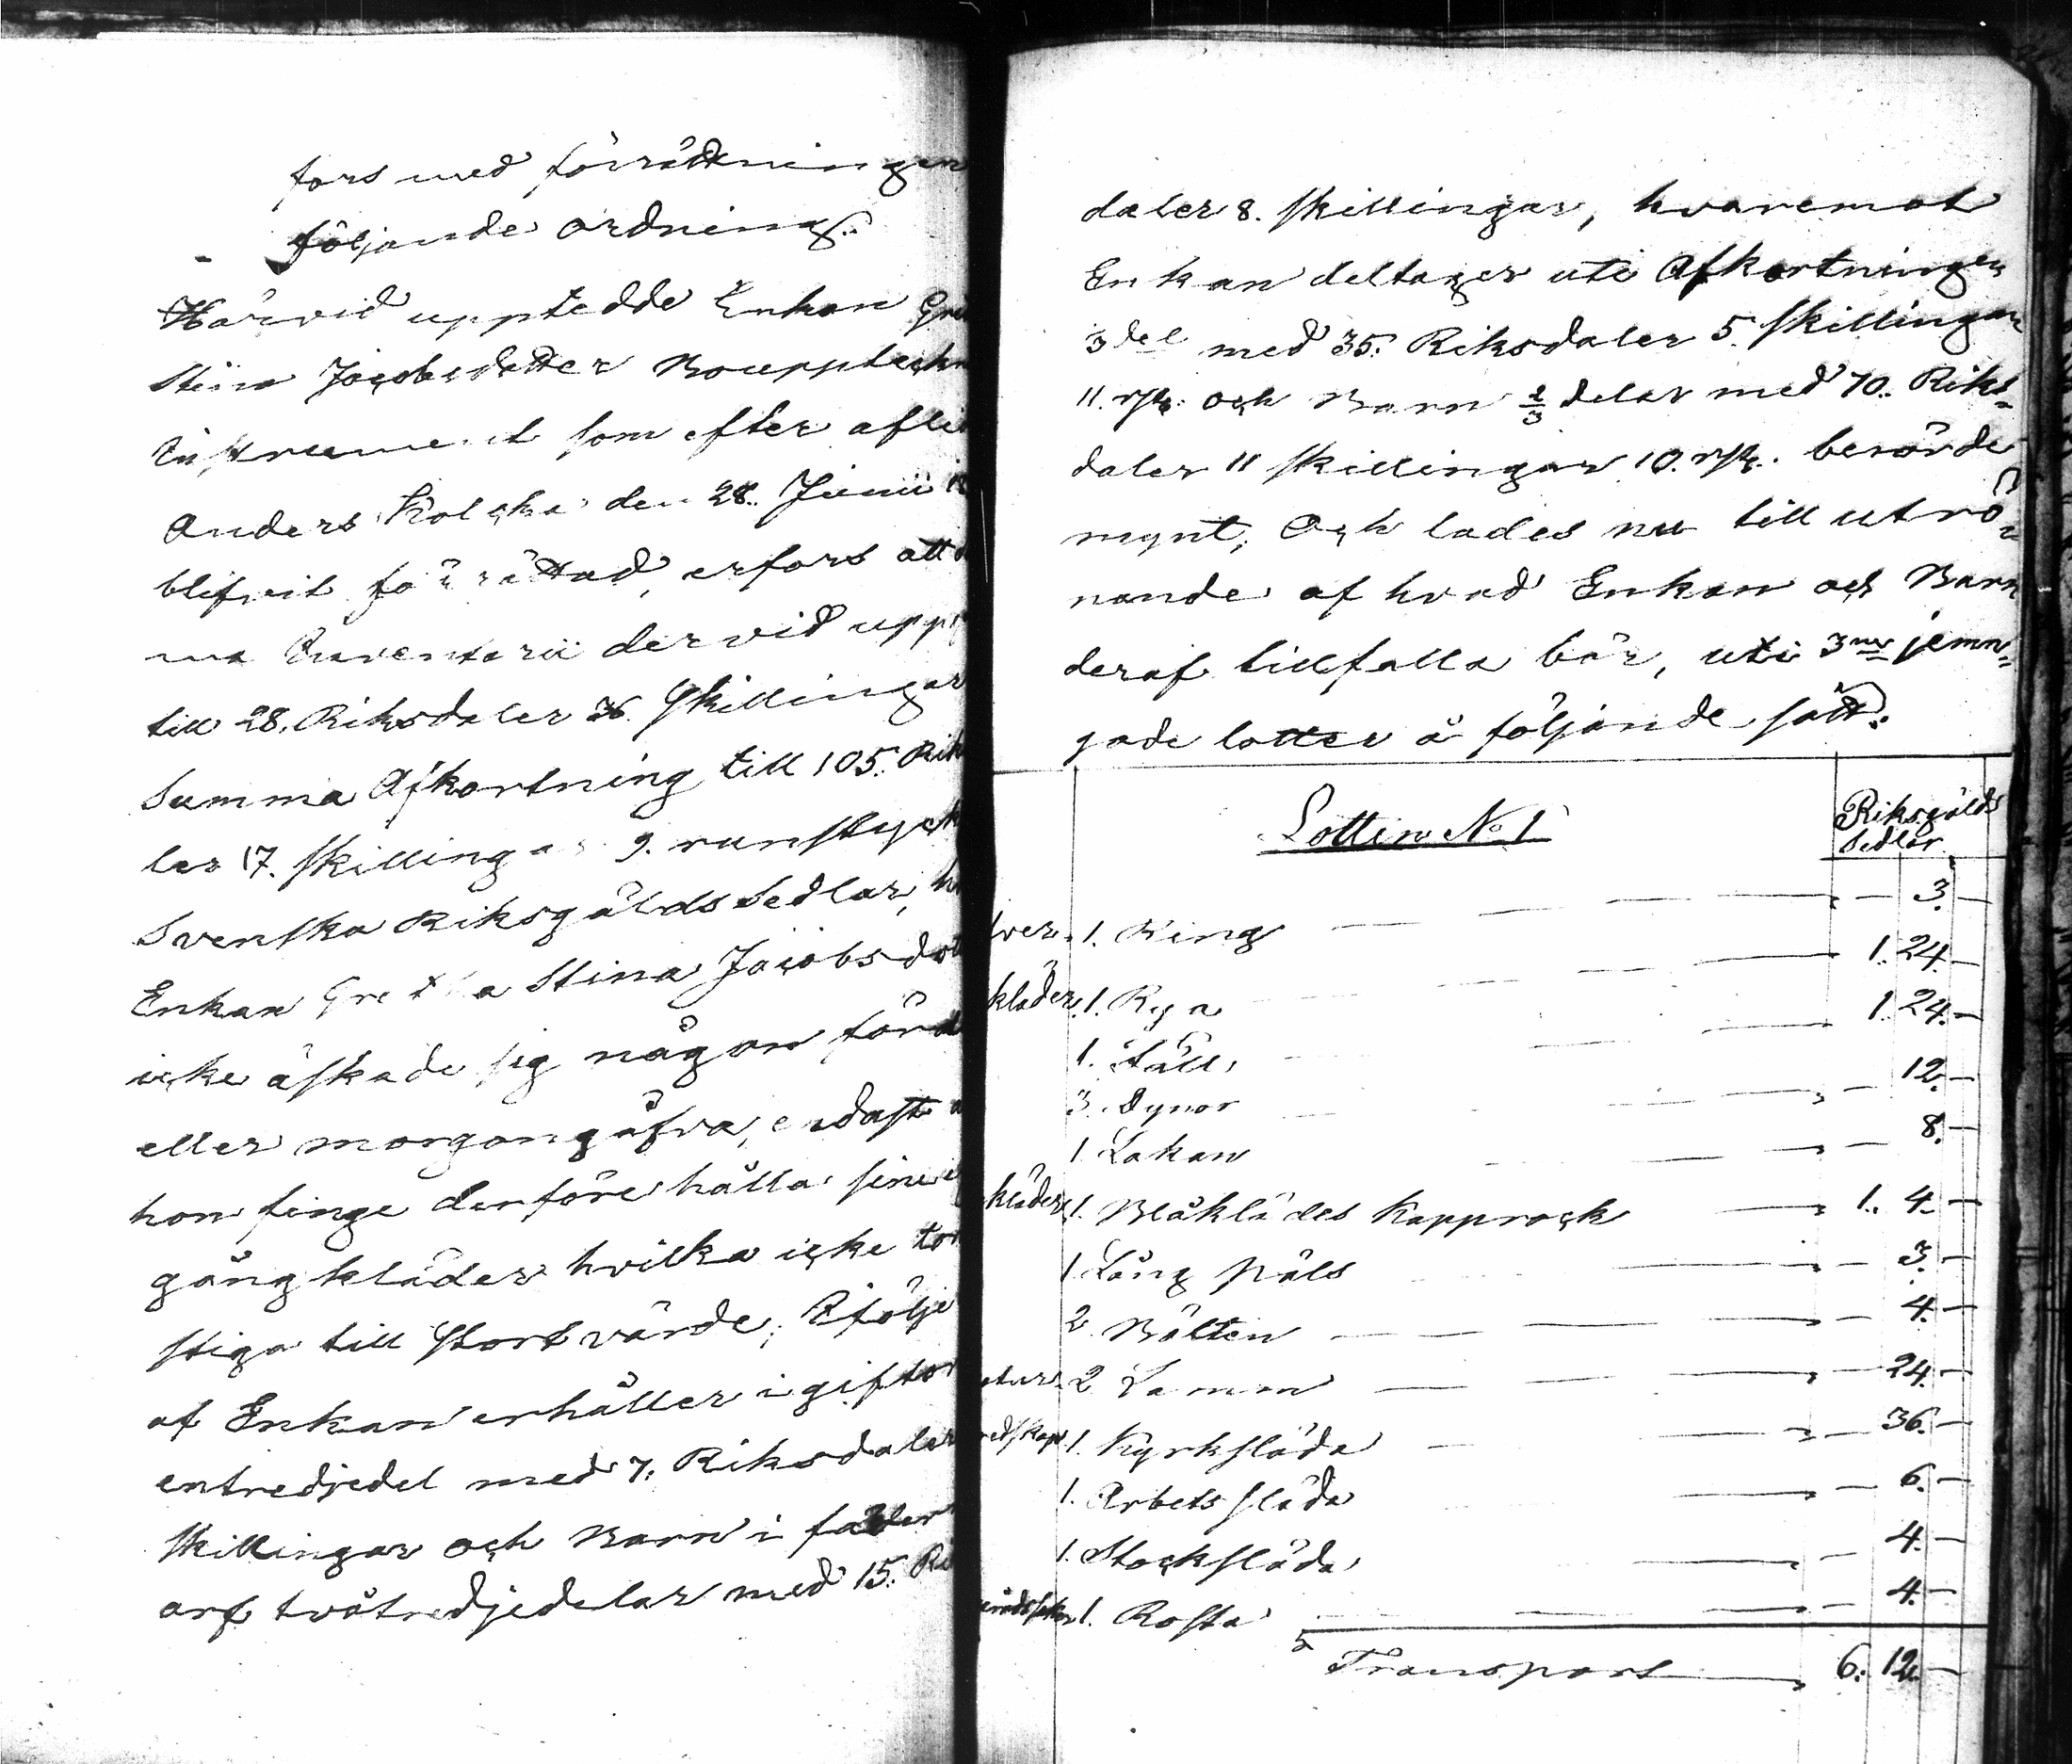 fors med förrättningen
följande ordning.
Härvid upptedde Enkan Gre
Stina Jacobsdotter Bouppteckn
Instrument som efter aflid
Anders Kolcka den 28. Junii 18
blifvit förrättad, erfors att
ma Inventarii der vid upp
till 28. Riksdaler 36 Skillingar
Summa Afkortning till 105. Rik
ler 17. Skillingar 9. runstyck
Svenska Riksgälds Sedlar, h
Enkan Gretha Stina Jacobsdot
icke äskade sig någon förd
eller morgongåfva, endast a
hon finge derföre hålla sine
gångkläder hvilka icke tor
stiga till stort värde; I följe
af Enkan erhåller i giftor
entredjedel med 7. Riksdaler
Skillingar och Barn i fäder
arf tvåtredjedelar med 15. Ri
daler 8. Skillingar, hvaremot
Enkan deltager uti Afkortningen
3del med 35. Riksdaler 5. Skillingar
11. rst. och Barn 2/3 delar med 70. Riks-
daler 11 Skillingar 10. rst. berörde
mynt; Och lades nu till utrö-
nande af hvad Enkan och Barn
deraf tillfalla bör, uti 3ne jemn-
gode lotter å följande sätt.
Lotten No 1 Riksgälds Sedlar
lver. 1. Ring — 3. —
kläder. 1. Rya — 1. 24. —
1. Fäll — 1. 24. —
3. Dynor — 12. —
1. Lakan — 8. —
kläder. 1. Blåklädes Kapprock — 1. 4. —
1 Lång päls — 3. —
2 Bälten — 4. —
aturs. 2 Lamm — 24. —
redskap. 1. Kyrksläda — 36. —
1. Arbets släda — 6. —
1. Stocksläda — 4. —
1. Rosta — 4. —
Transport — 6. 12. —